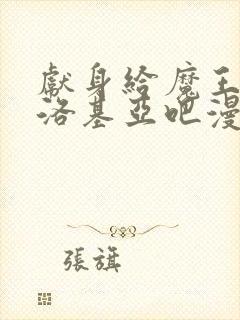 獻身給魔王
洛基亞吧漫
張旗